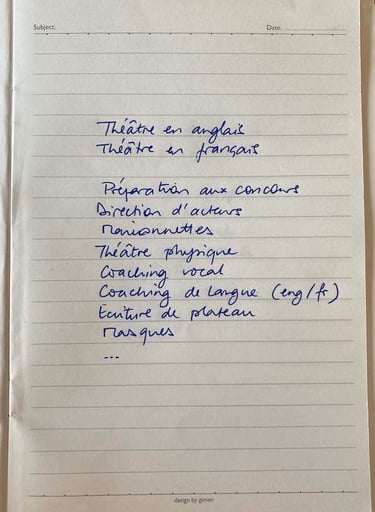 Subject.
Date.
Théâtre en anglais
Théâtre en français
Préparation aux concours
Direction d'acteurs
Marionnettes
Théâtre physique
Coaching vocal
Coaching de langue (eng/fr)
Ecriture de plateau
Masques
...
design by gimen